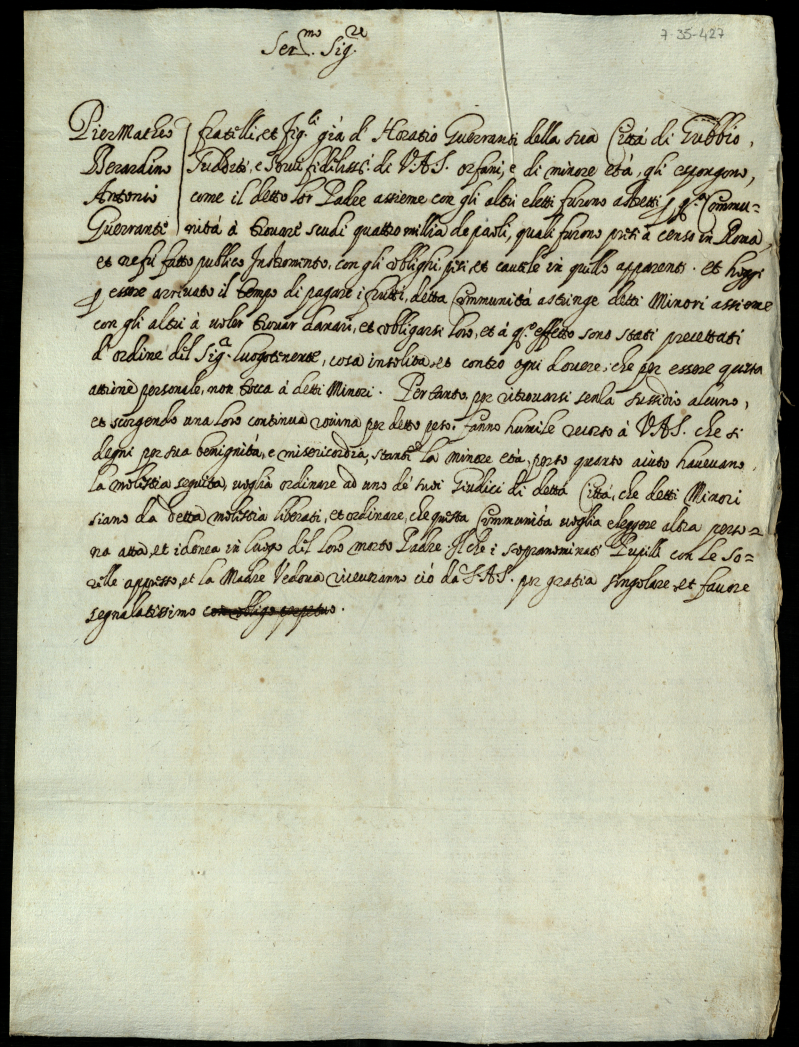 7-35-427
Ser.mo Sig.re
PierMatheo fratelli, et fig.li già d' Horatio Guerranti della sua Città di Gubbio,
Berardino Sudditi, e servi fidiliss.i di V.A.S. orfani, e di minore età, gli espongono,
Antonio come il detto lor Padre assieme con gli altri eletti furono astretti p q.a Commu=
Guerranti nità à trovare scudi quattromillia de paoli, quali furono presi à censo in Roma,
et ne fu fatto publico Instromento, con gli oblighi, et cautele in quello apparenti. et hoggi
p essere arrivato il tempo di pagare i frutti, detta Communità astringe detti Minori assieme
con gli altri à voler trovar danari, et obligarsi loro, et à q.o effetto sono stati precettati
d' ordine del Sig.r luogotenente, cosa insolita, et contro ogni dovere, che per essere questa
attione personale, non tocca à detti Minori. Pertanto, per ritrovarsi senza sussidio alcuno,
et scorgendo una loro continua rovina per detto peso, fanno humile ricorso à V.A.S. che si
degni per sua benignità, e misericordia, stante la minore età, perso quanto aiuto havevano,
la molestia seguita, voglia ordinare ad uno de' suoi Giudici di detta Città, che detti Minori
siano da detta molestia liberati, et ordinare, che questa Communità voglia eleggere altra perso=
na atta, et idonea in luogo del loro morto Padre. Il che i sopranominati Pupilli con le so=
relle appresso, et la Madre Vedova riceveranno ciò da V.A.S. per gratia singolare, et favore
segnalatissimo con obligo perpetuo.